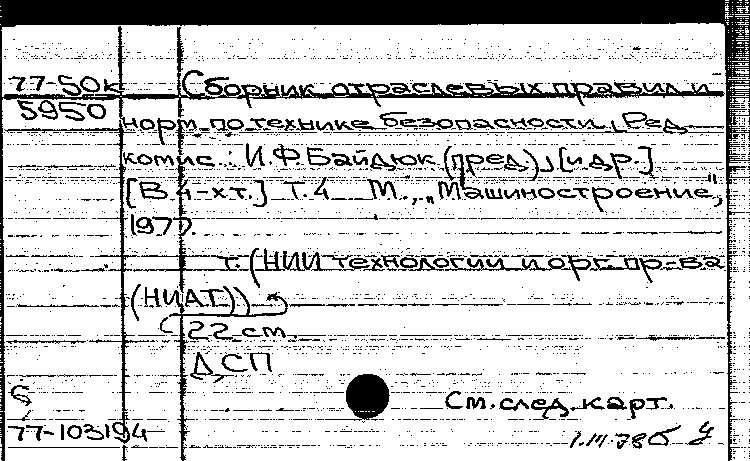 77-50к Сборник отраслевых правил и
5950
норм по технике безопасности. [Ред.
комис.: И.Ф. Байдюк (пред.), [и др.]
[В 4-х т.] Т. 4 М., "Машиностроение",
1977.
т. (НИИ технологии и орг. пр-ва
(НИАТ))
22 см.
ДСП
См. след. карт.
77-103194
1.III.78